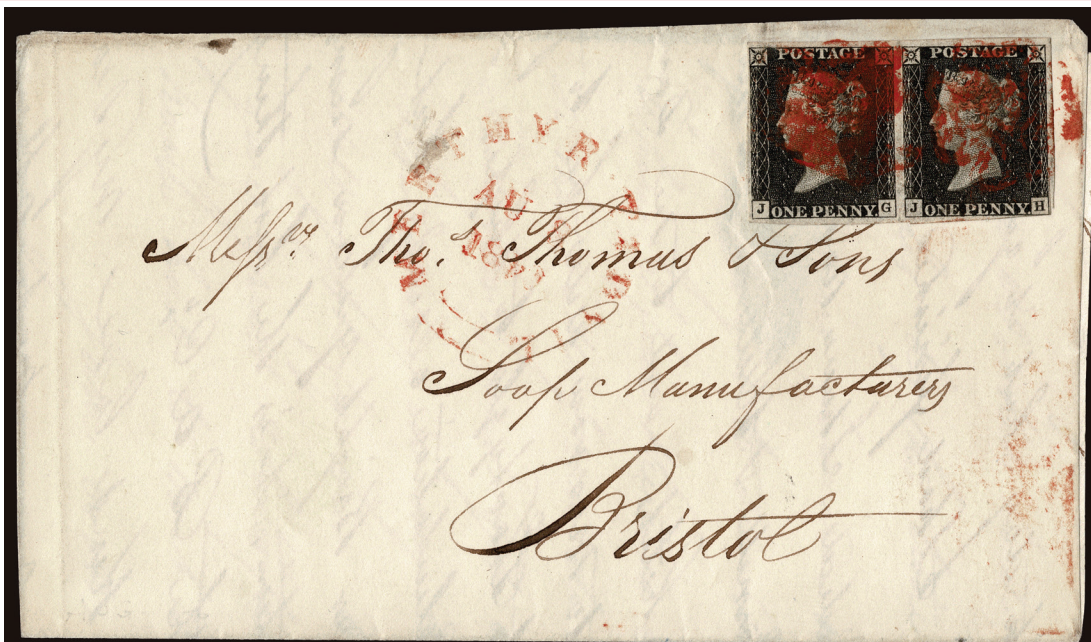 POSTAGE POSTAGE
J ONE PENNY G J ONE PENNY H
THYR
AU
Messrs. Thos. Thomas & Sons
Soap Manufacturers
Bristol